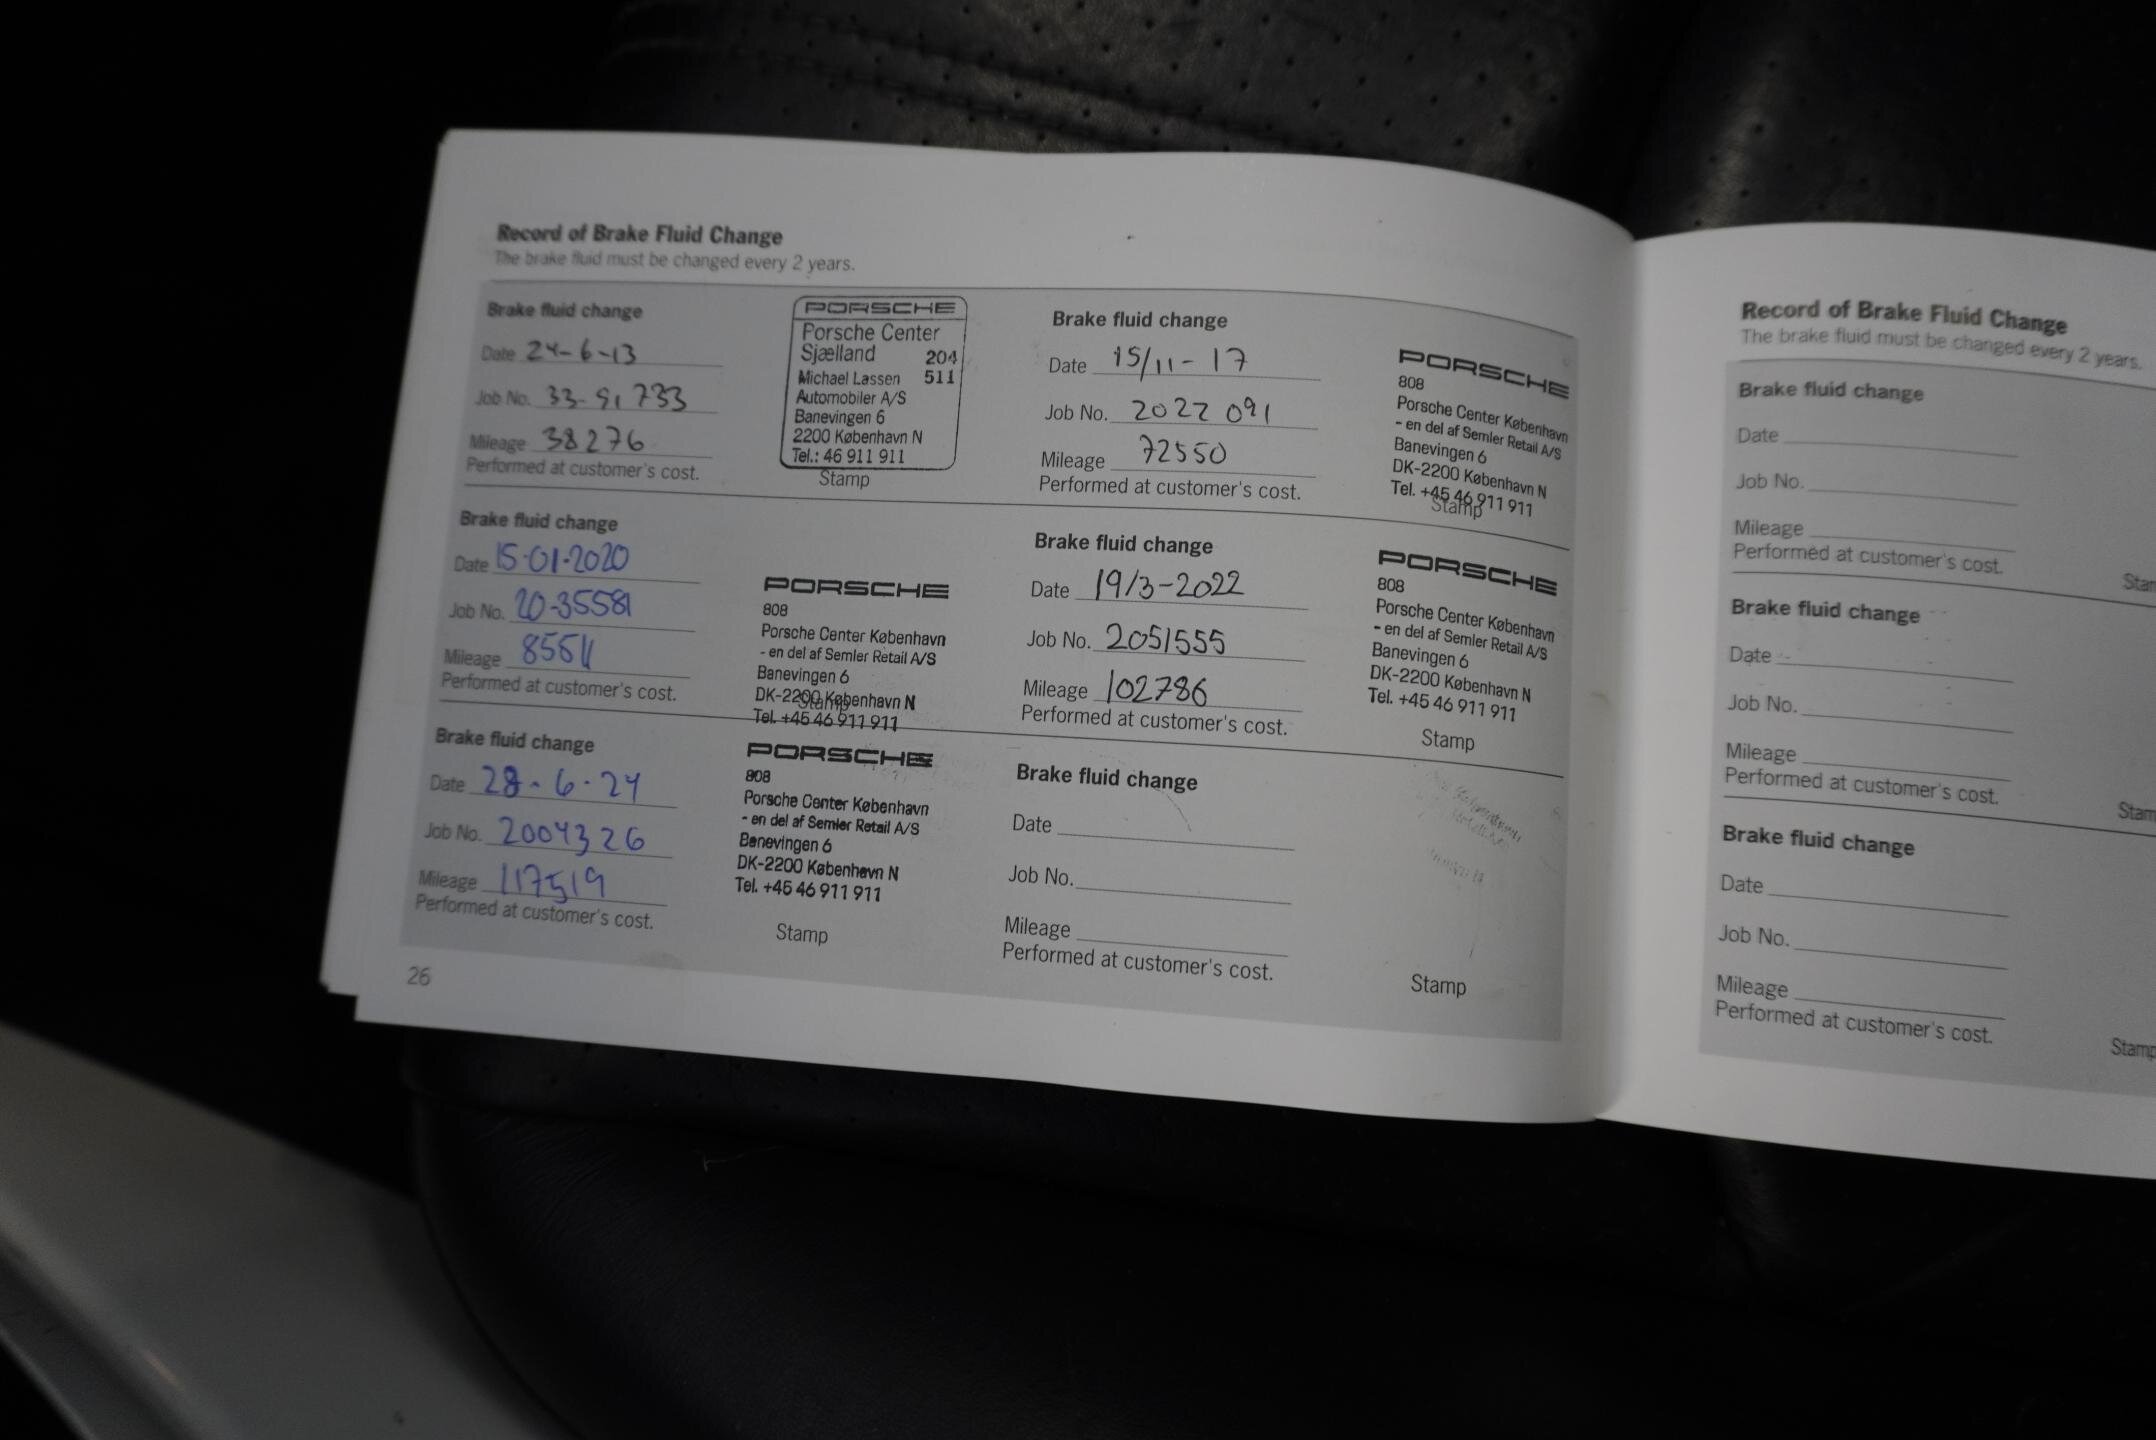 Record of Brake Fluid Change
The brake fluid must be changed every 2 years.
Brake fluid change
Date 24-6-13
Job No. 33-91733
Mileage 38276
Performed at customer's cost.
PORSCHE
Porsche Center
Sjælland 204
Michael Lassen 511
Automobiler A/S
Banevingen 6
2200 København N
Tel.: 46 911 911
Stamp
Brake fluid change
Date 15/11-17
Job No. 2022 091
Mileage 72550
Performed at customer's cost.
PORSCHE
808
Porsche Center København
- en del af Semler Retail A/S
Banevingen 6
DK-2200 København N
Tel. +45 46 911 911
Stamp
Brake fluid change
Date 15-01-2020
Job No. 20-35581
Mileage
Performed at customer's cost.
PORSCHE
808
Porsche Center København
- en del af Semler Retail A/S
Banevingen 6
DK-2200 København N
Stamp
Tel. +45 46 911 911
Brake fluid change
Date 19/3-2022
Job No. 2051555
Mileage 102786
Performed at customer's cost.
PORSCHE
808
Porsche Center København
- en del af Semler Retail A/S
Banevingen 6
DK-2200 København N
Tel. +45 46 911 911
Stamp
Brake fluid change
Date 28-6-24
Job No. 2004326
Mileage 117519
Performed at customer's cost.
PORSCHE
808
Porsche Center København
- en del af Semler Retail A/S
Banevingen 6
DK-2200 København N
Tel. +45 46 911 911
Stamp
Brake fluid change
Date
Job No.
Mileage
Performed at customer's cost.
Stamp
26
Record of Brake Fluid Change
The brake fluid must be changed every 2 years.
Brake fluid change
Date
Job No.
Mileage
Performed at customer's cost.
Brake fluid change
Date
Job No.
Mileage
Performed at customer's cost.
Stam
Brake fluid change
Date
Job No.
Mileage
Performed at customer's cost.
Stamp